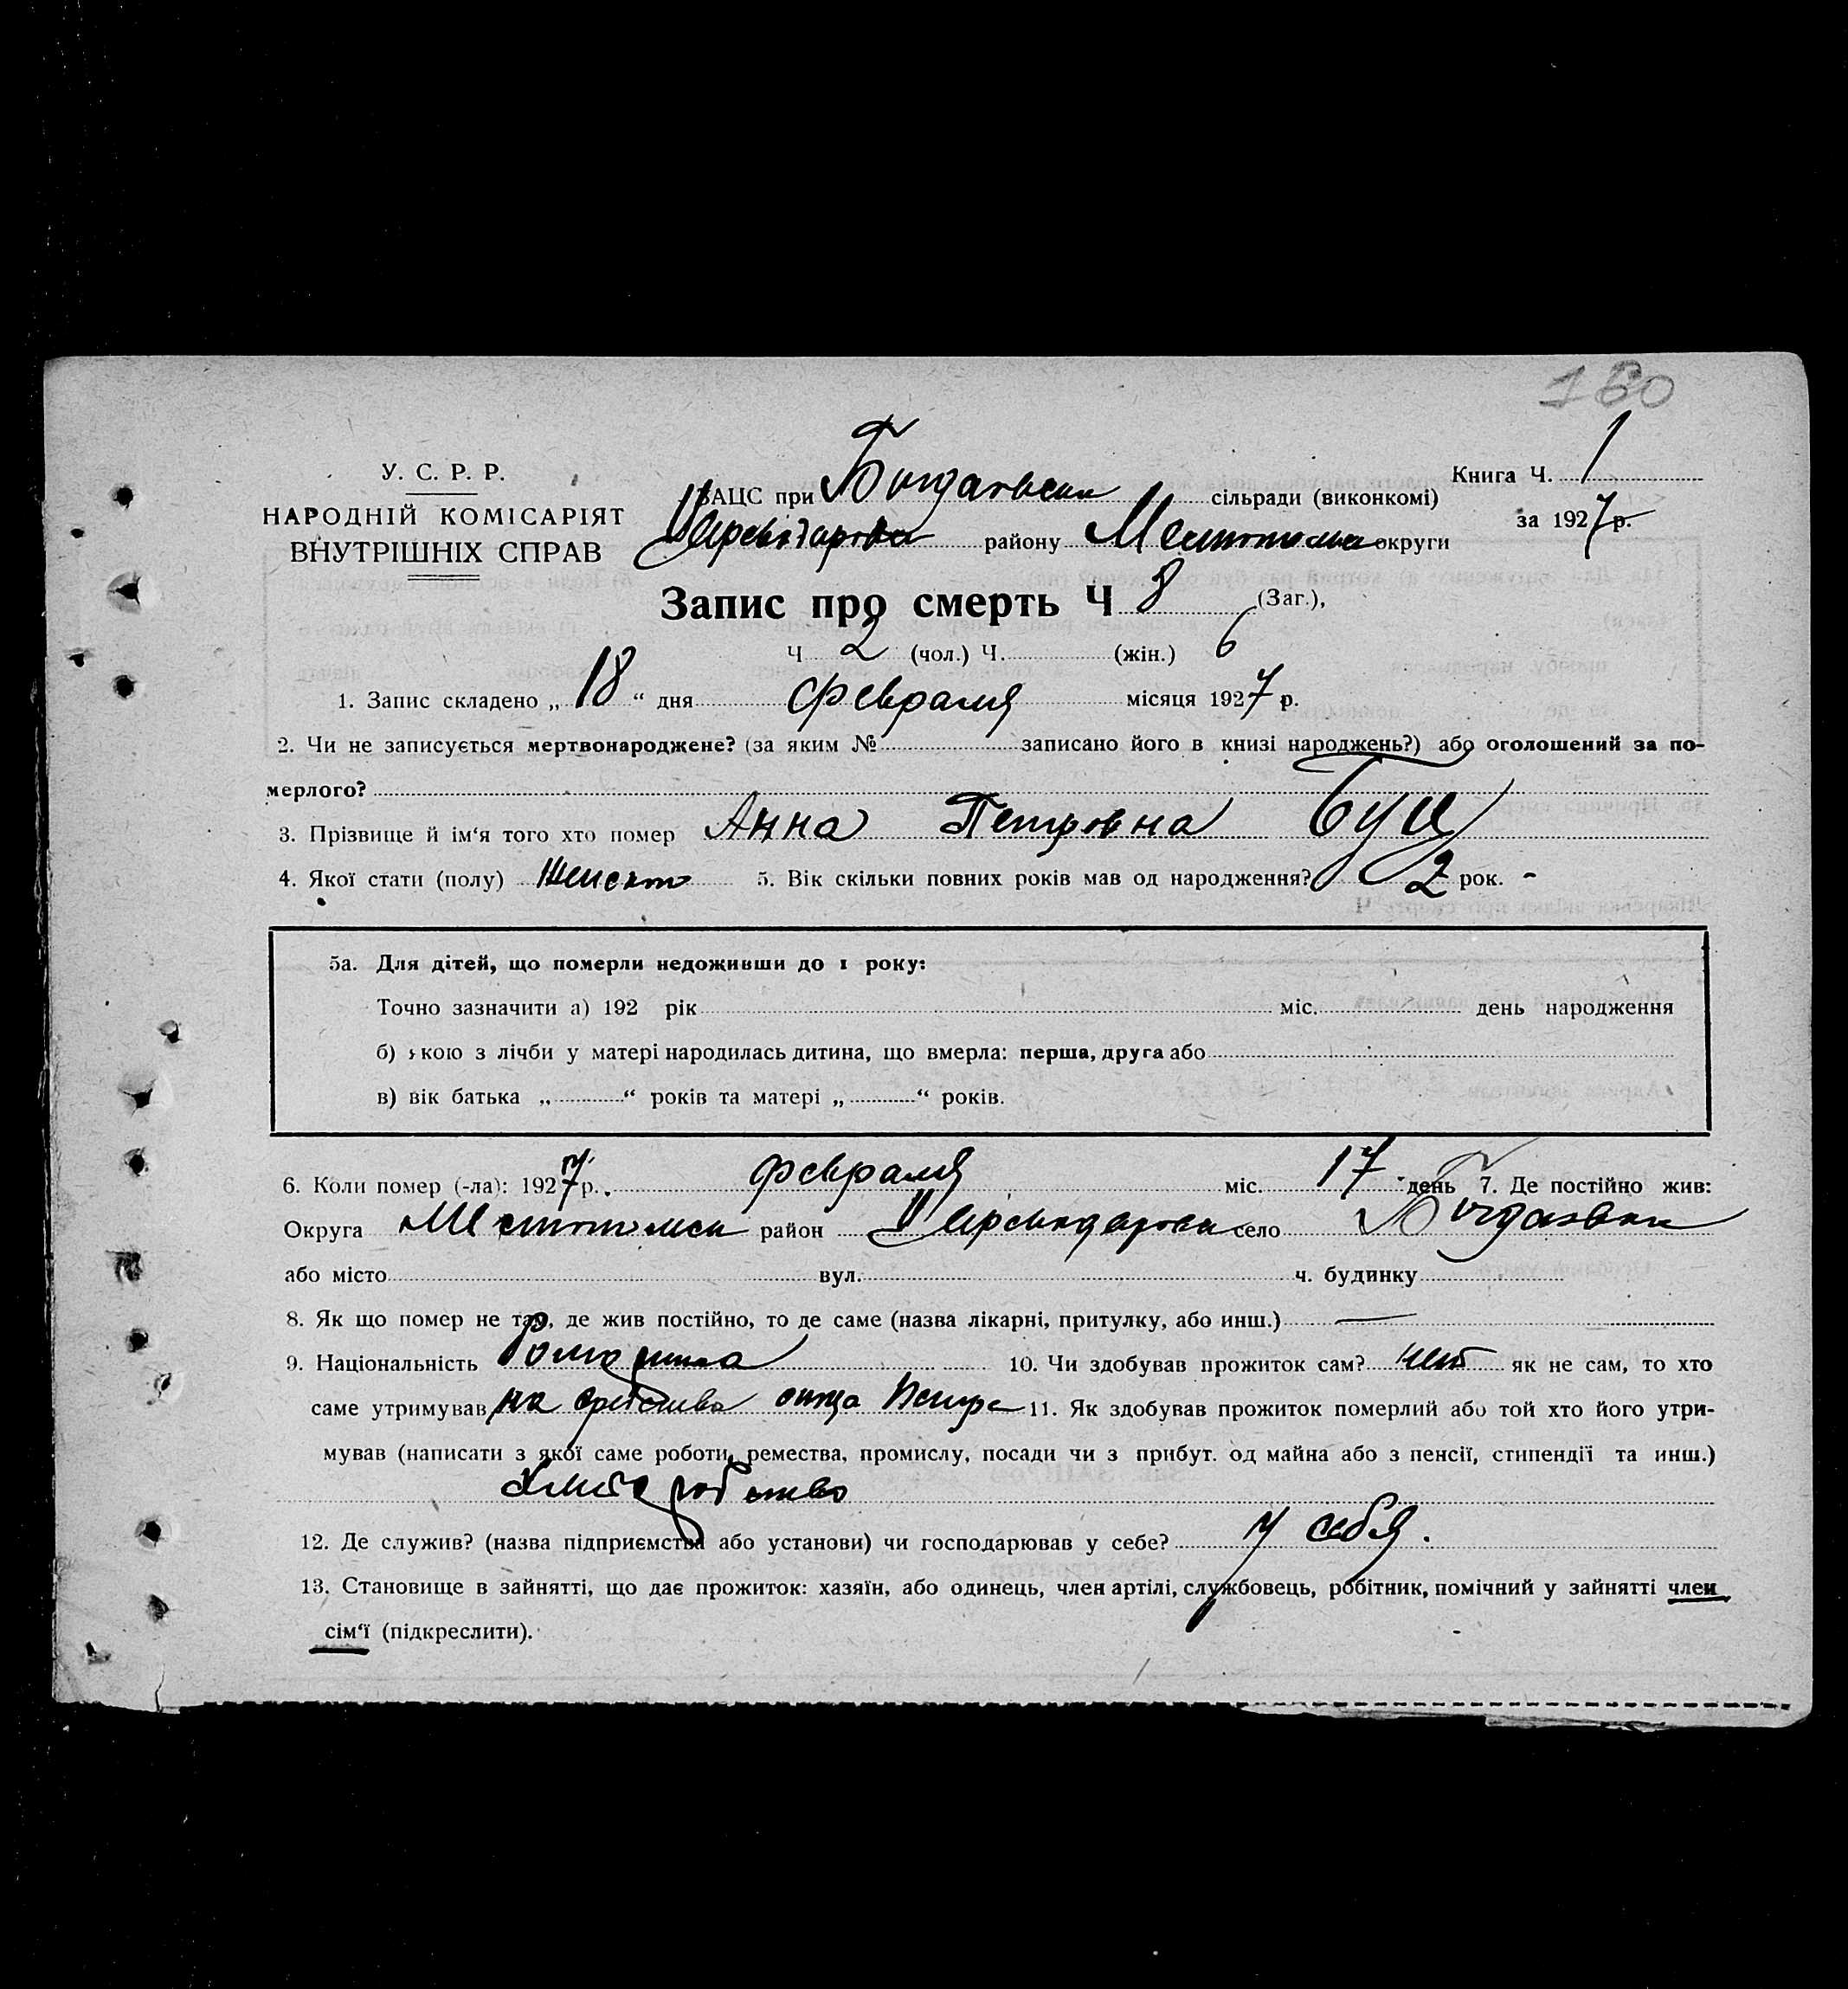 160
У. С. Р. Р.
НАРОДНІЙ КОМІСАРІЯТ
ВНУТРІШНІХ СПРАВ
ЗАЦС при сільради (виконкомі)
району Мелитопольск округи
Книга Ч. 1
за 1927 р.
Запис про смерть Ч 8 (Заг.),
Ч 2 (чол.) Ч. (жін.) 6
1. Запис складено „ 18 “ дня февраля місяця 1927 р.
2. Чи не записується мертвонароджене? (за яким № записано його в книзі народжень?) або оголошений за по-
мерлого?
3. Прізвище й ім‘я того хто помер Анна Петровна Буц
4. Якої стати (полу) женского 5. Вік скільки повних років мав од народження? 2 рок. -
5а. Для дітей, що померли недоживши до 1 року:
Точно зазначити а) 192 рік міс. день народження
б) якою з лічби у матері народилась дитина, що вмерла: перша, друга або
в) вік батька „ “ років та матері „ “ років.
6. Коли помер (-ла): 1927 р. февраля міс. 17 день 7. Де постійно жив:
Округа Мелитопольск район село
або місто вул. ч. будинку
8. Як що помер не там, де жив постійно, то де саме (назва лікарні, притулку, або инш.) —
9. Національність 10. Чи здобував прожиток сам? нет як не сам, то хто
саме утримував на средства отца Петра 11. Як здобував прожиток померлий або той хто його утри-
мував (написати з якої саме роботи, ремества, промислу, посади чи з прибут. од майна або з пенсії, стипендії та инш.)
12. Де служив? (назва підприємства або установи) чи господарював у себе? у себя.
13. Становище в зайнятті, що дає прожиток: хазяїн, або одинець, член артілі, службовець, робітник, помічний у зайнятті член
сім‘ї (підкреслити).